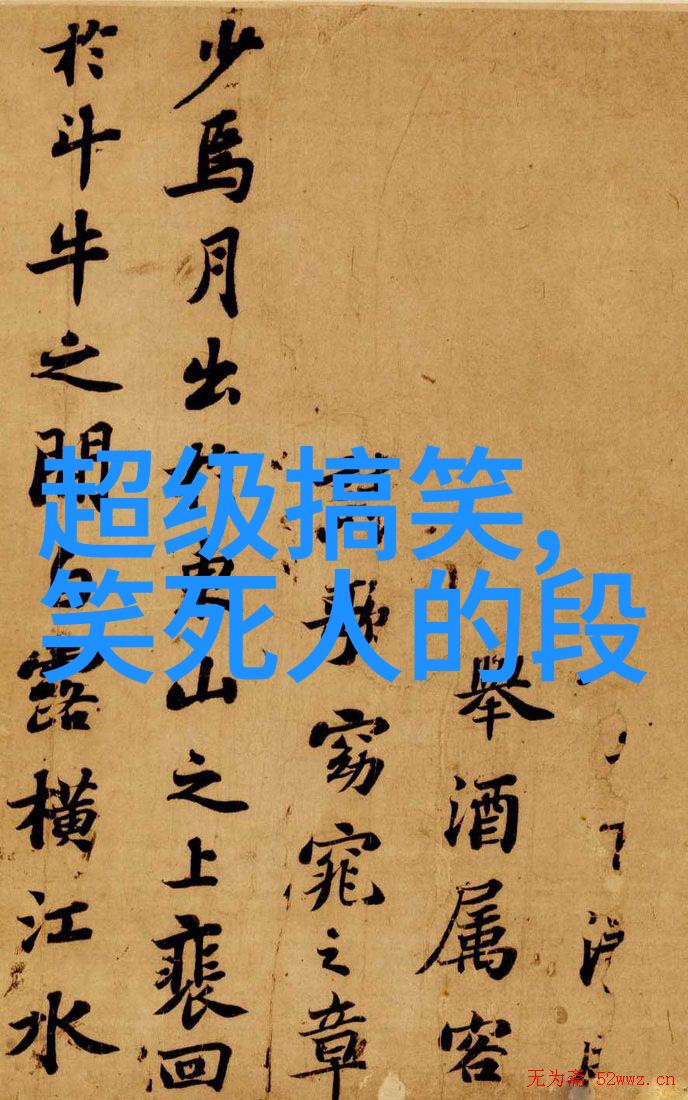 舉酒属客
歌窈窕之章
少焉月出於東山之上裴回
於斗牛之間白露橫江水
超级搞笑,
笑死人的段
无为斋 52wwz.cn